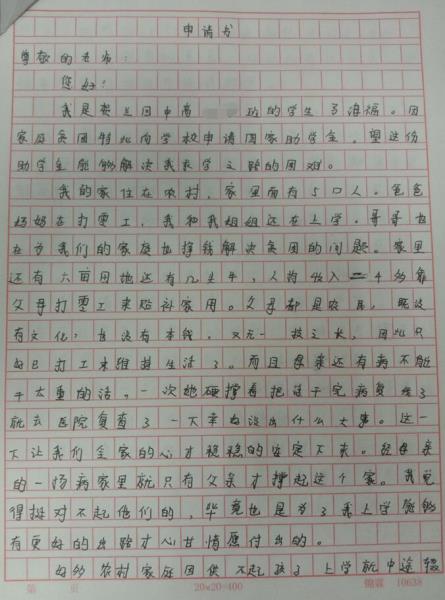 申请书
尊敬的老师:
您好!
我是 高 班的学生 浪福。因
家庭贫困特此向学校申请国家助学金。望这份
助学金能够解决我求学之路的困难。
我的家住在农村,家里面有5口人。爸爸
妈妈在打零工,我和我姐姐还在上学。哥哥也
在为我们的家庭也挣钱解决贫困的问题。家里
还有六亩田地还有几头牛,人均收入 靠
父母打零工来贴补家用。父母都是农民,既没
有文化,也没有本钱,又无一技之长,因此只
好已打工来维持生活了。而且母亲还有病不能
干太重的活,一次她硬撑着把活干完病复发了
就去医院复查了一下幸好没出什么大事。这一
下让我们全家的心才稳稳的安定下来。经母亲
的一场病家里就只有父亲才撑起这个家。我觉
得挺对不起他们的,毕竟也是为了我上学能够
有更好的出路才心甘情愿付出的。
好多农村家庭因供不起孩子上学就中途辍
第 页 20×20=400 锦霖 10638